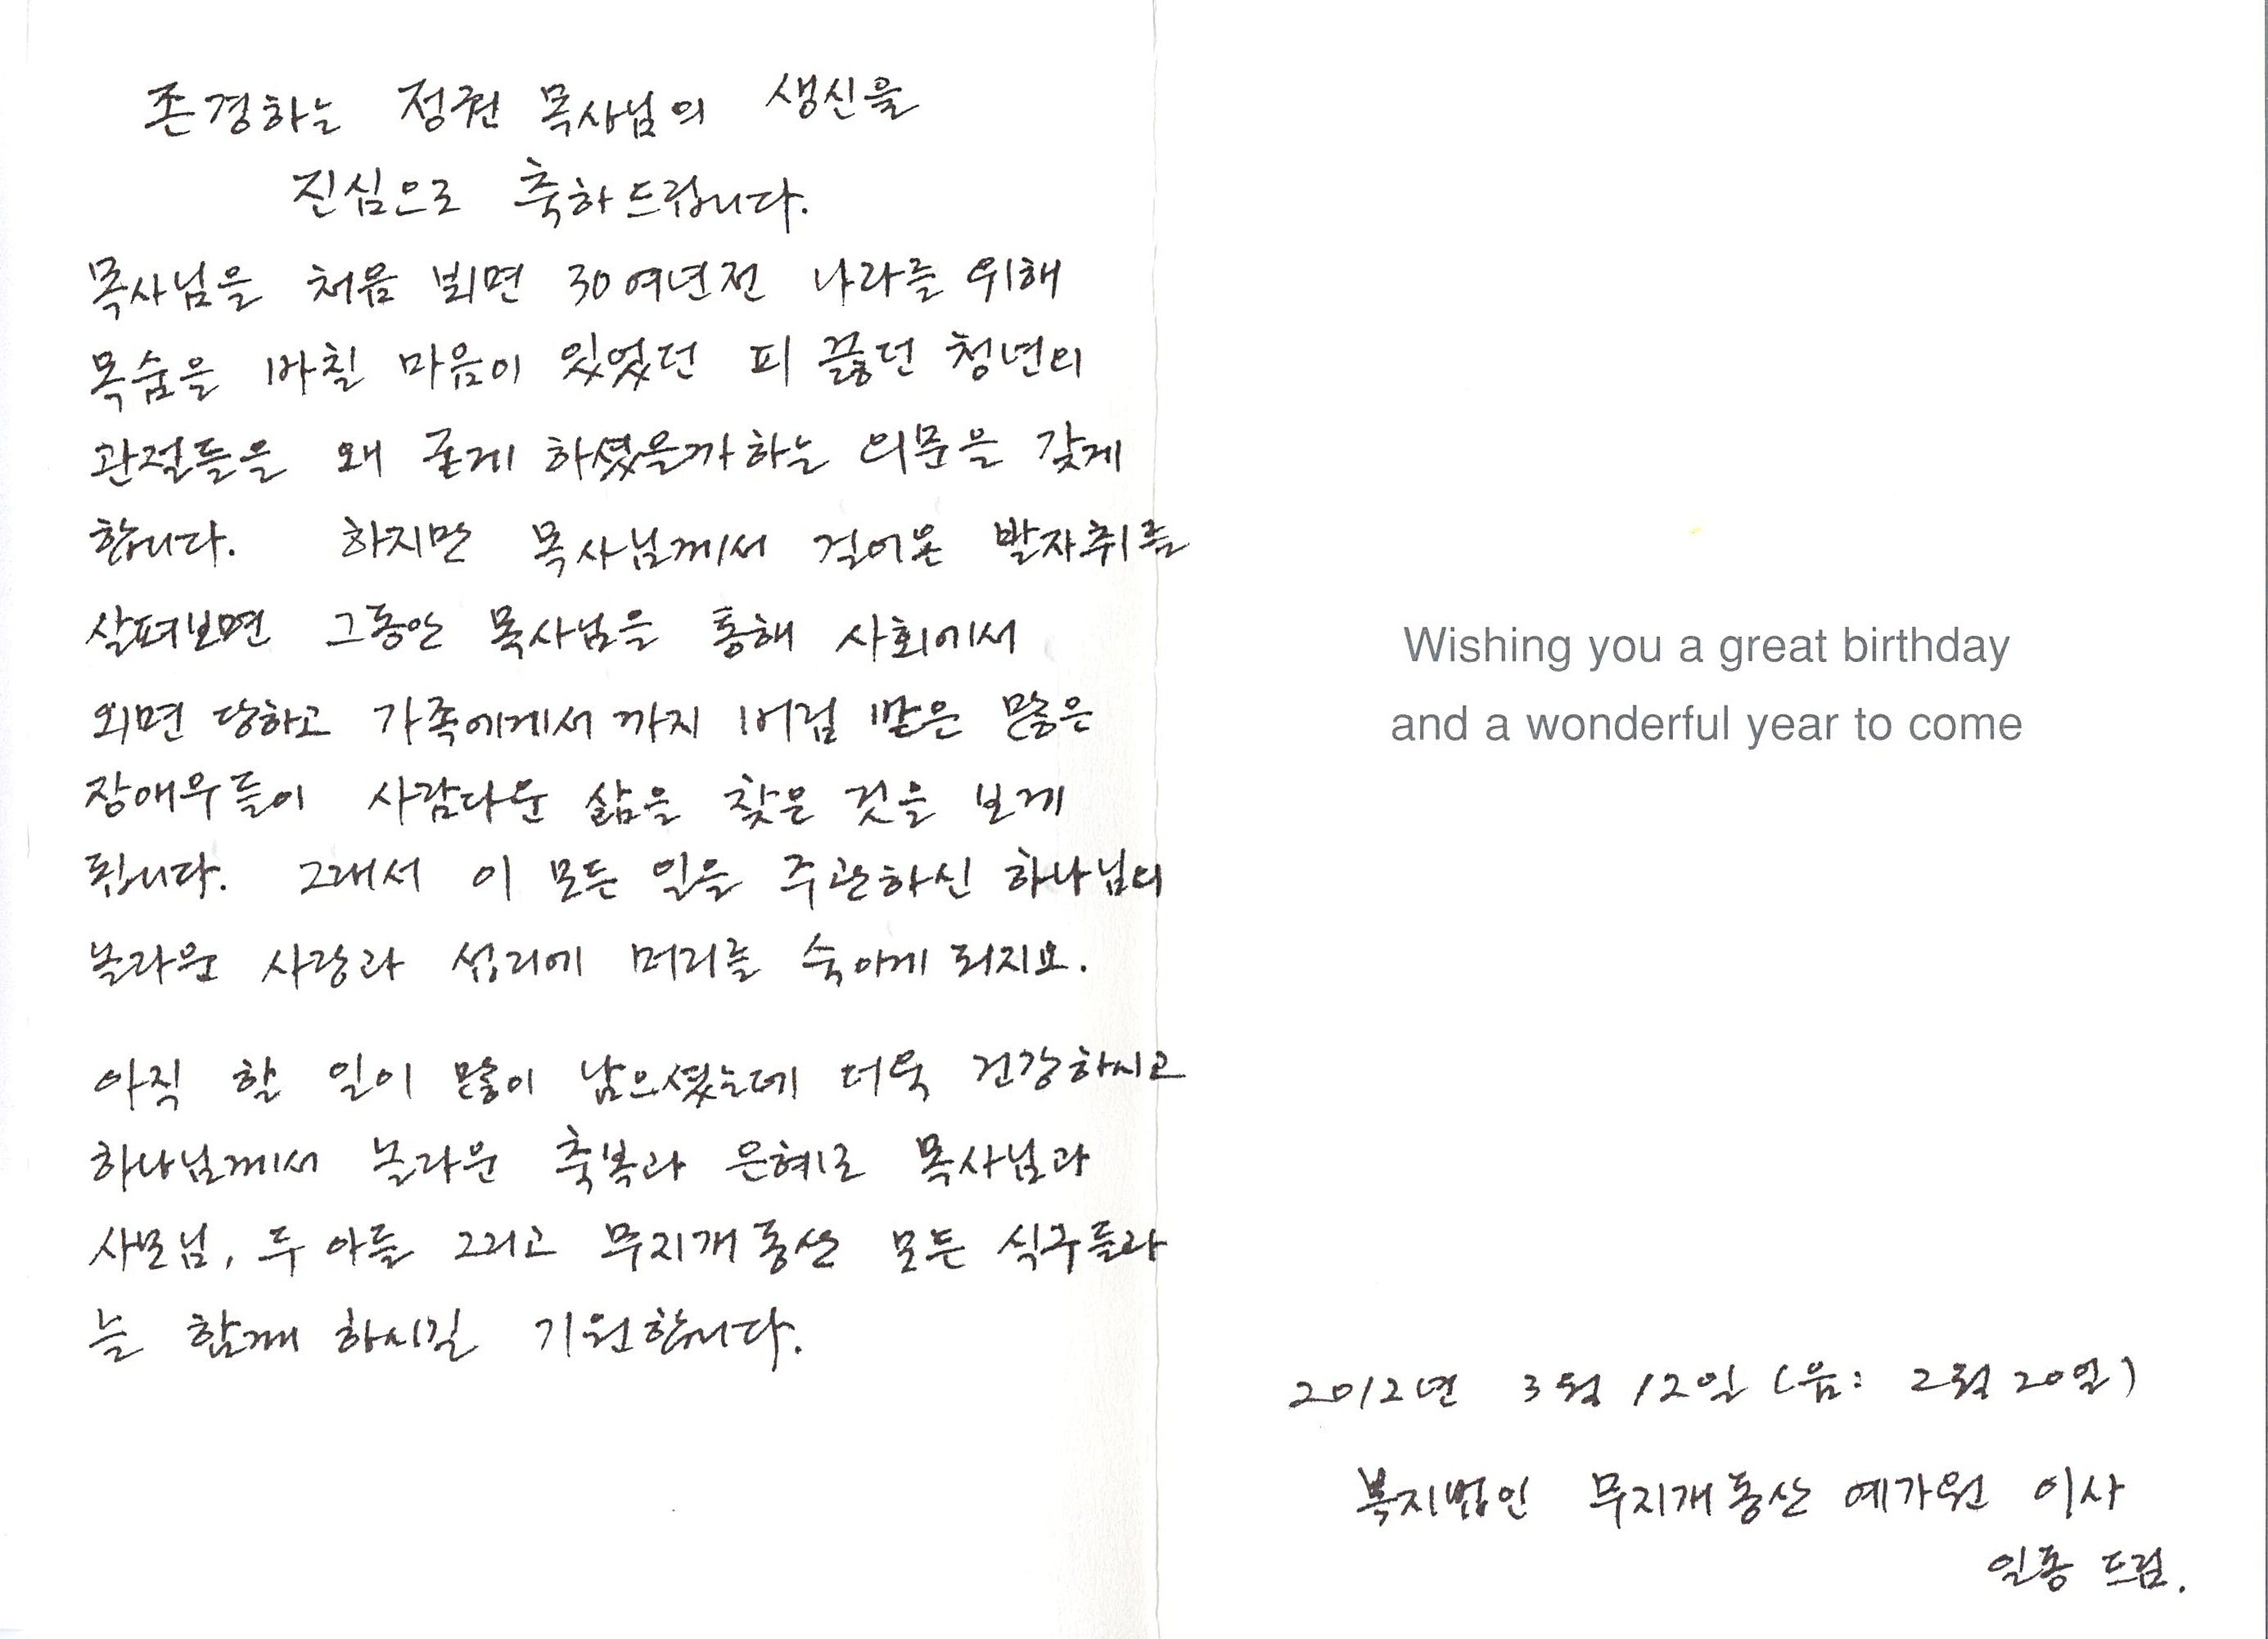 존경하는 정권 목사님의 생신을
진심으로 축하드립니다.
목사님을 처음 뵈면 30여년전 나라를 위해
목숨을 바칠 마음이 있었던 피 끓던 청년의
관절들을 왜 굳게 하셨을까하는 의문을 갖게
합니다. 하지만 목사님께서 걸어온 발자취를
살펴보면 그동안 목사님을 통해 사회에서
외면 당하고 가족에게서 까지 버림 받은 많은
장애우들이 사람다운 삶을 찾은 것을 보게
됩니다. 그래서 이 모든 일을 주관하신 하나님의
놀라운 사랑과 섭리에 머리를 숙이게 되지요.
아직 할 일이 많이 남으셨는데 더욱 건강하시고
하나님께서 놀라운 축복과 은혜로 목사님과
사모님, 두 아들 그리고 무지개동산 모든 식구들과
늘 함께 하시길 기원합니다.
Wishing you a great birthday
and a wonderful year to come
2012년 3월 12일 (음: 2월 20일)
복지법인 무지개동산 예가원 이사
일동 드림.